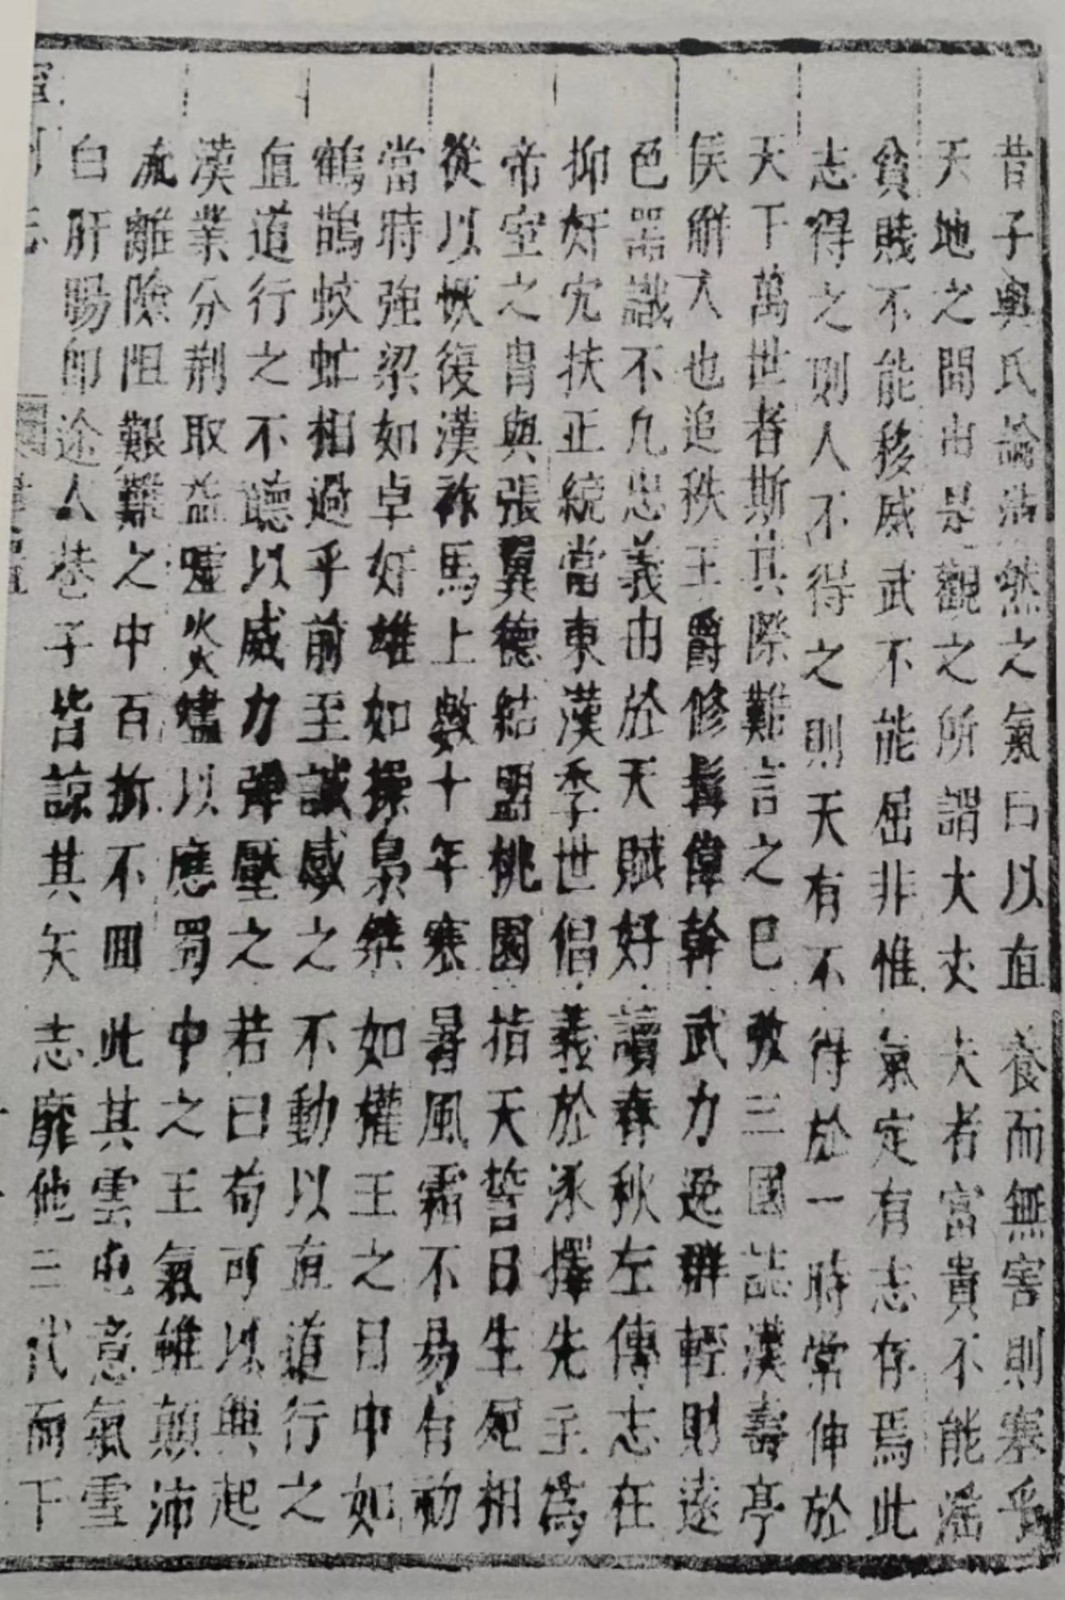 昔子輿氏論浩然之氣曰以直養而無害則塞乎
天地之間由是觀之所謂大丈夫者富貴不能滛
貧賤不能移威武不能屈非惟氣定有志存焉此
志得之則人不得之則天有不得於一時常伸於
天下萬世者斯其際難言之已攷三國誌漢壽亭
侯觧人也追秩王爵修髯偉幹武力逸群輕財遠
色器識不凢忠義由於天賦好讀春秋左傳志在
抑奸宄扶正統當東漢季世倡義於涿擇先主為
帝室之胄與張翼德結盟桃園指天誓日生死相
從以恢復漢祚馬上數十年寒暑風霜不易有初
當時強梁如卓奸雄如操梟桀如權王之目中如
鶴鵲蚊虻相過乎前至誠感之不動以直道行之
直道行之不聽以威力彈壓之若曰苟可以興起
漢業分荆取益嘘炎燼以應蜀中之王氣雖顛沛
流離險阻艱難之中百折不囬此其雲屯意氣雪
白肝腸即途人巷子皆諒其矢志靡他三代而下